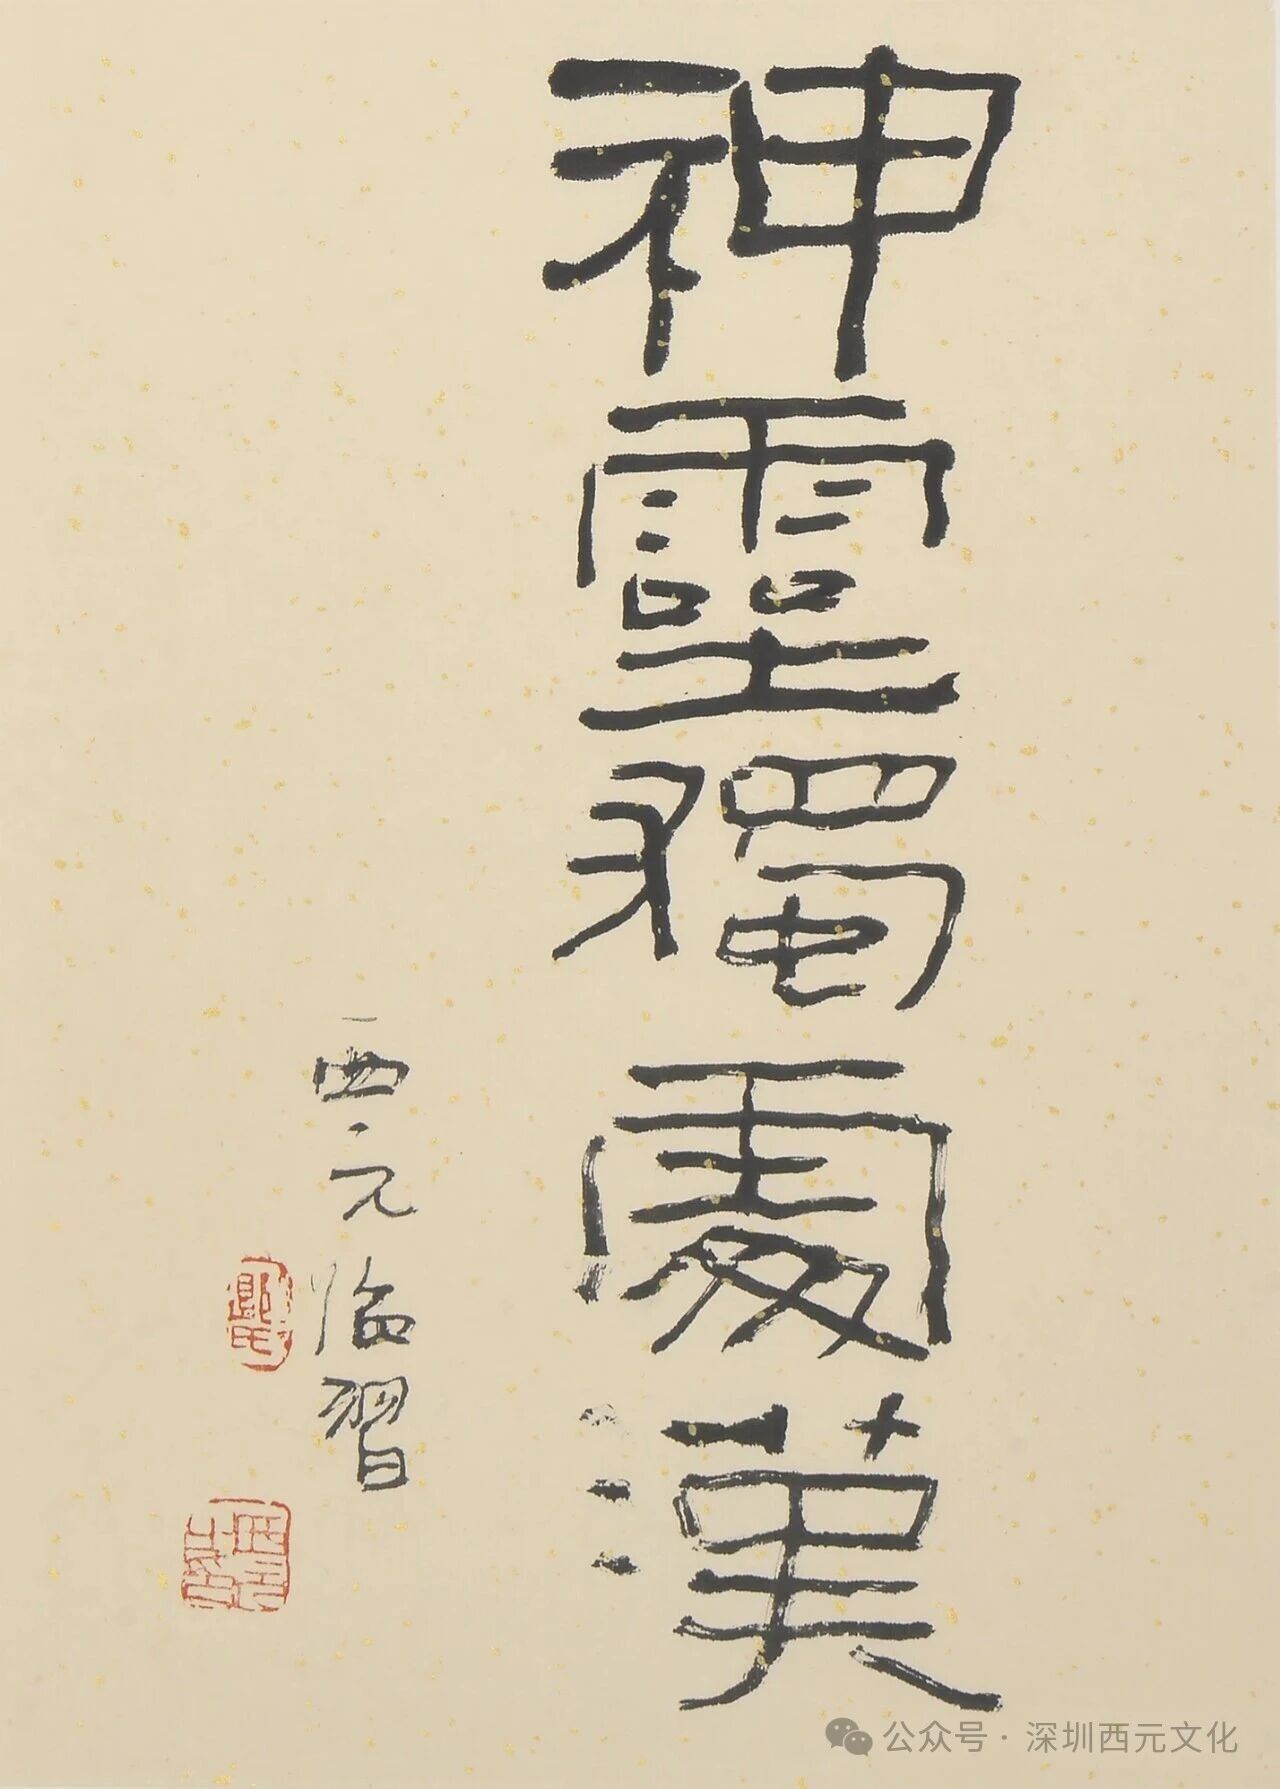 神靈獨處漢
西元临習
公众号·深圳西元文化